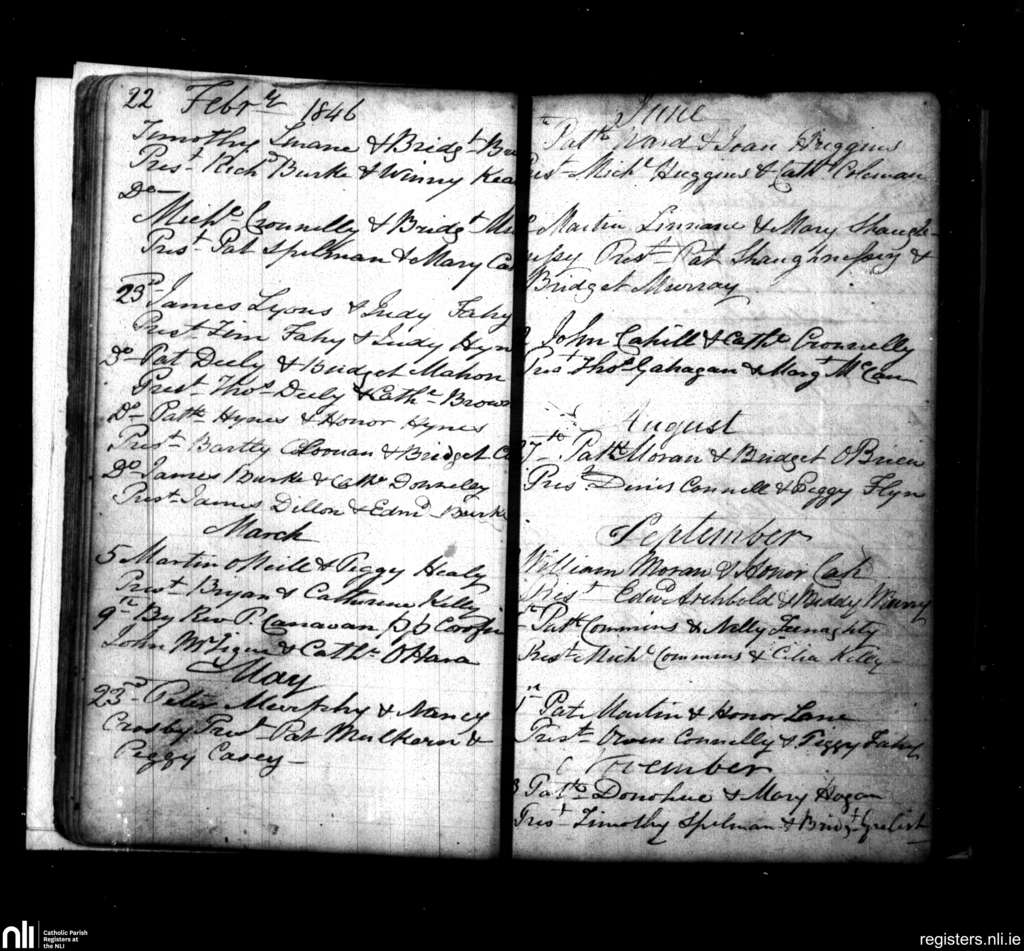 22 Febry 1846
Timothy Linane & Bridgt
Prest Richd Burke & Winny
Do
Michl Cronnelly & Bridgt
Prest Pat Spelman & Mary
23d James Lyons & Judy Fahy
Prest Tim Fahy & Judy Hyn
Do Pat Deely & Bridget Mahon
Prest Thos Deely & Cathe Brow
Do Patk Hynes & Honor Hynes
Prest Bartly Noonan & Bridget
Do James Burke & Cathe Donnelly
Prest James Dillon & Edmd Burke
March
5 Martin oNeill & Peggy Healy
Prest Bryan & Catherine Kelly
9th By Rev P. Canavan, PP Corofin
John McTigue & Cathe OHara
May
23rd Peter Murphy & Nancy
Crosby Prest Pat Mulkern &
Peggy Casey
June
Patk Ward & Joan Huggins
Prest Michl Huggins & Cathe Coleman
Martin Linnane & Mary Shaugh-
nessy Prest Pat Shaughnessy &
Bridget Murray
John Cahill & Cathe Cronnelly
Prest Thos Gahagan & Margt McCan
August
Patk Moran & Bridget OBrien
Prest Dinis Connell & Peggy Flyn
September
William Moran & Honor
Prest Edwd Archbold & Biddy
Patk Commins & Nelly Feenaghty
Prest Michl Commins & Cilia Kelly
Pat Martin & Honor Lane
Prest Owen Connelly & Peggy Fahy
November
Patk Donohue & Mary Hogan
Prest Timothy Spelman & Bridgt
nli Catholic Parish
Registers at
the NLI
registers.nli.ie